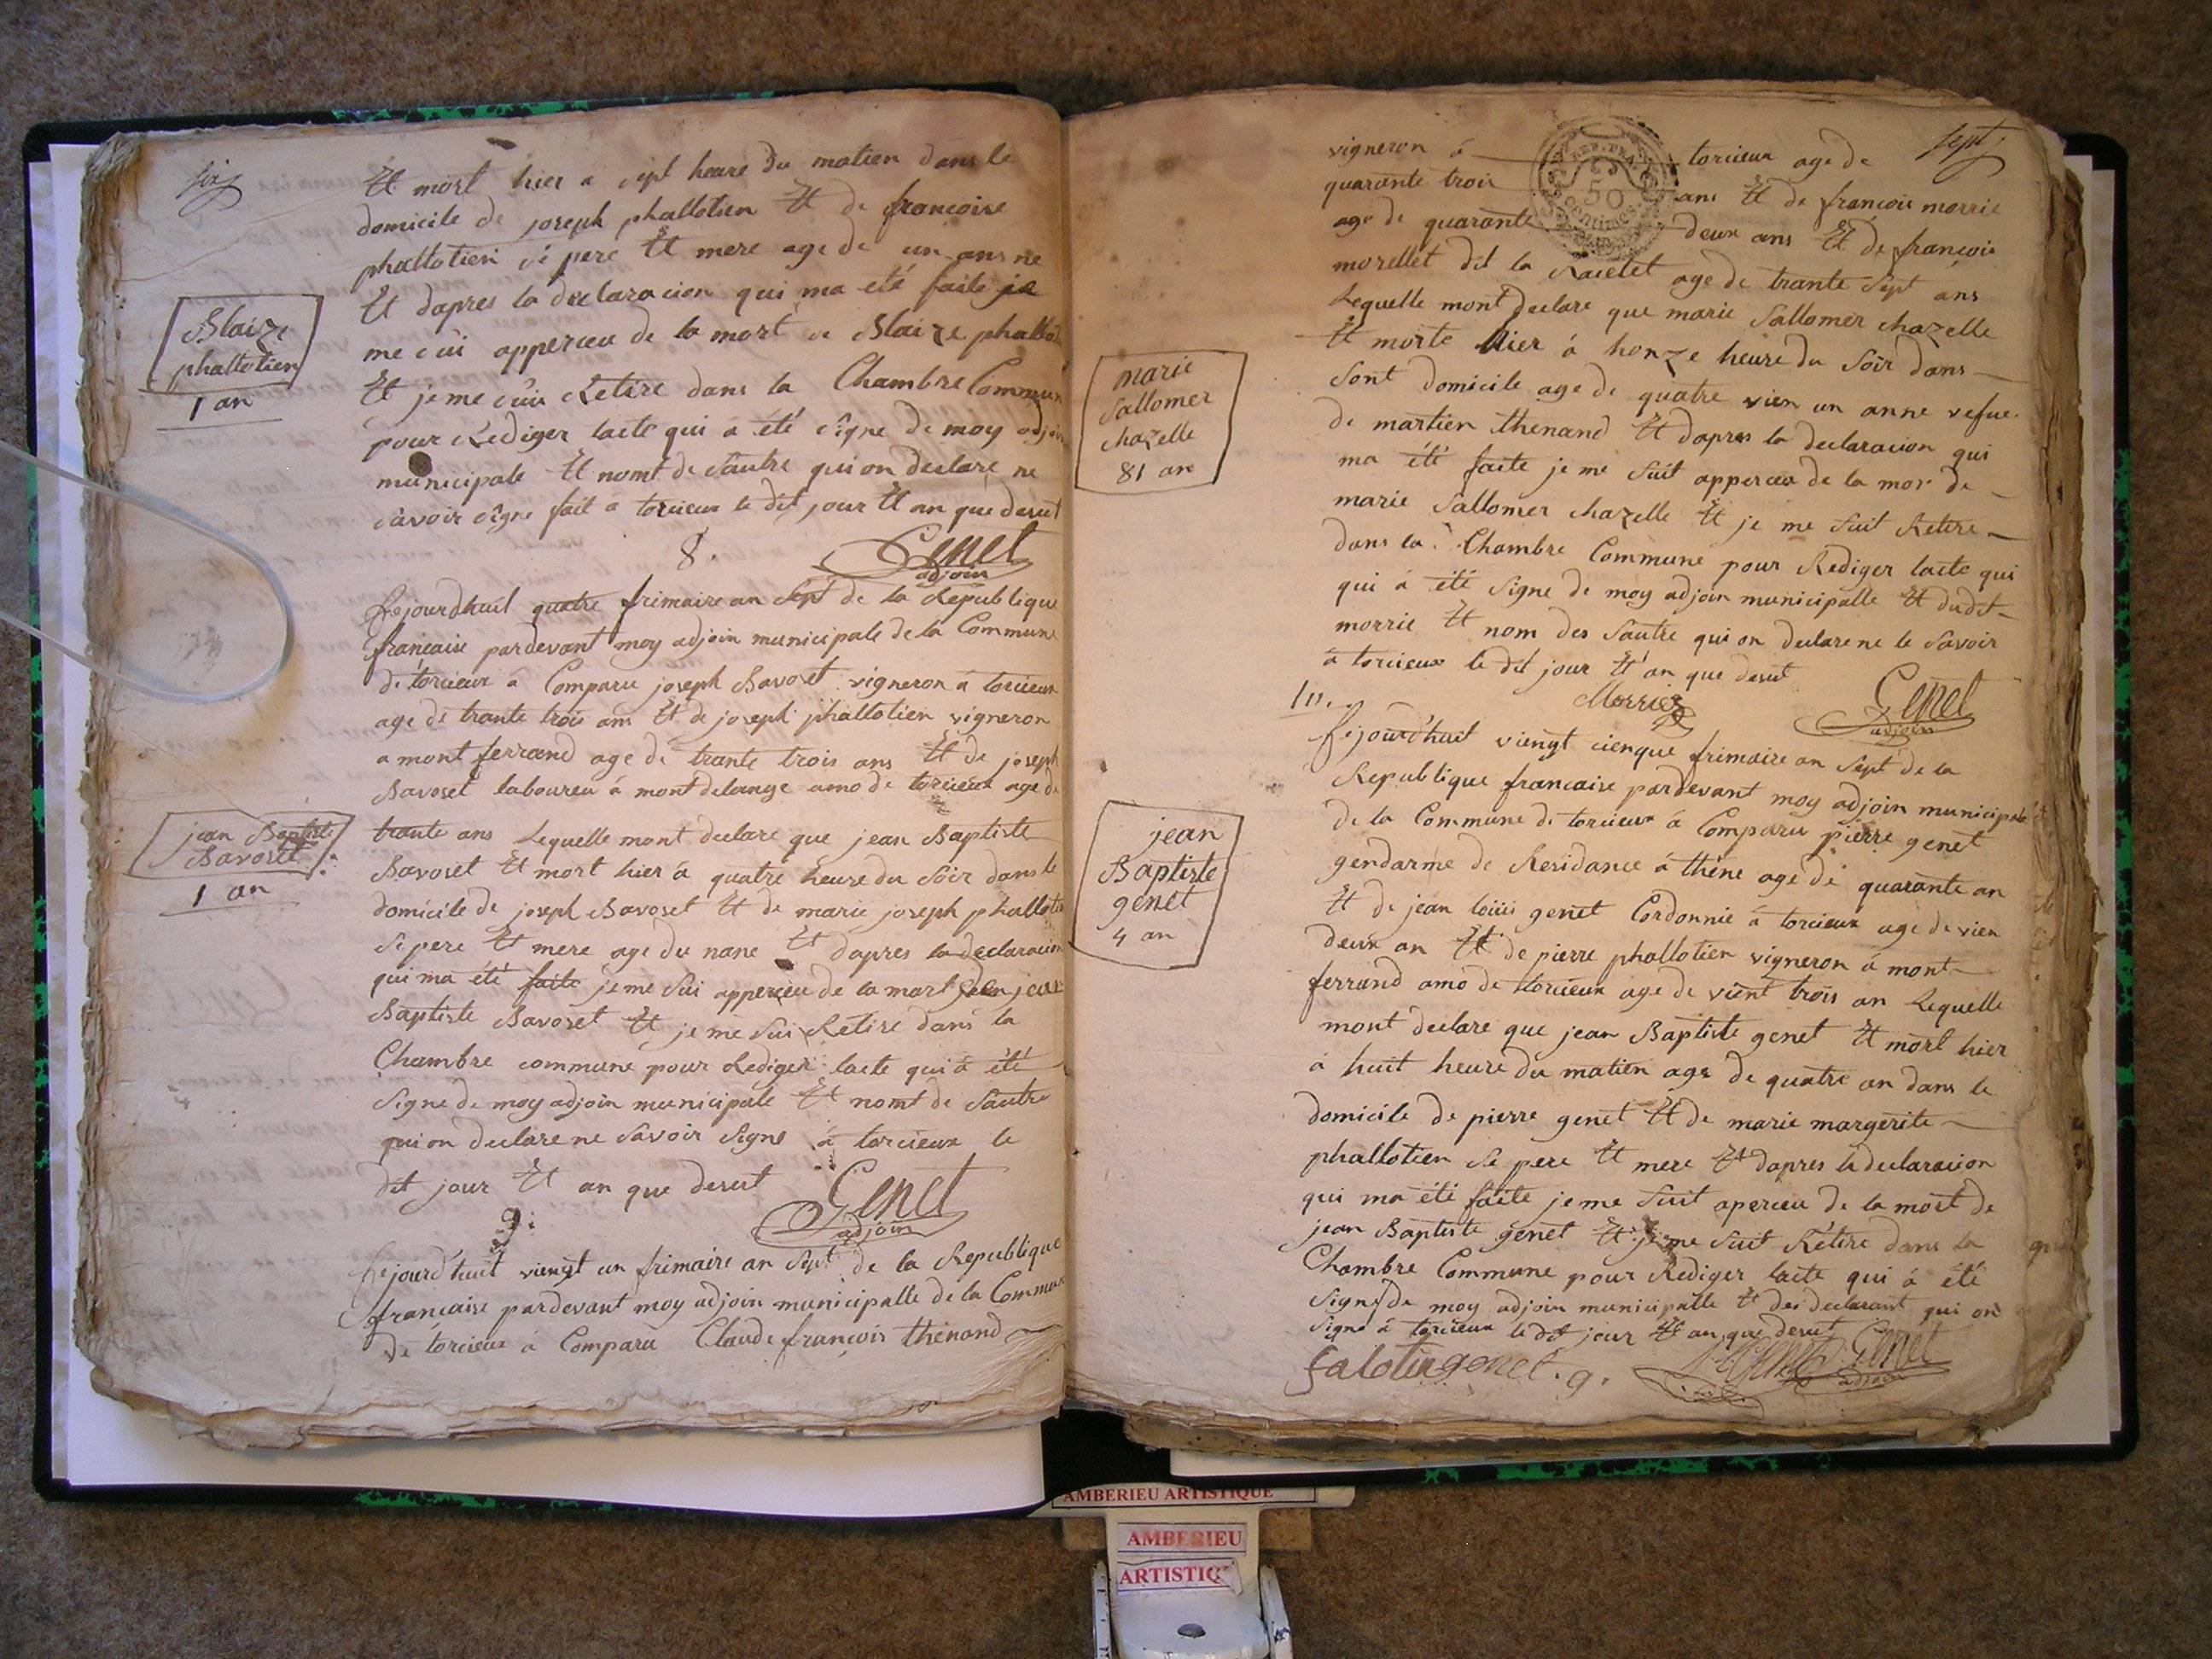 six
Et mort hier a sept heure du matien dans le
domicile de joseph phallotien Et de francoise
phallotien sé pere Et mere age de un ans ne
Et dapres la declaracion qui ma eté faite je
me sui apperceu de la mort de Blaize phallo
Et je me sui Retire dans la Chambre Commun
pour Rediger lacte qui a été signe de moy adjoin
municipale Et nomt de sautre qui on declare ne
savoir signe fait a torcieux le dit jour Et an que desut
Blaize
phallotien
1 an
Genet
adjoin
8.
Lejourdhuit quatre frimaire an sept de la Republique
francaise pardevant moy adjoin municipale de la Commune
de torcieux a Comparu joseph Bavoset vigneron a torcieux
age de trante trois ans Et de joseph phallotien vigneron
a mont ferrand age de trante trois ans Et de joseph
Bavoset laboureu á mont delange amo de torcieux age de
trante ans Lequelle mont declare que jean Baptiste
Bavoset Et mort hier á quatre heure du Soir dans le
domicile de joseph Bavoset Et de marie joseph phalloti
Se pere Et mere age du nane Et dapres la declaracion
qui ma été faite je me Sui apperceu de la mort jean
Baptiste Bavoset Et je me Sui Retire dans la
Chambre commune pour Rediger lacte qui á été
Signe de moy adjoin municipale Et nomt de Sautre
qui on declare ne Savoir Signe á torcieux le
dit jour Et an que desut
jean Baptiste
Bavoset
1 an
Genet
adjoin
9:
Lejourd'huit viengt un frimaire an Sept de la Republique
francaise pardevant moy adjoin municipalle de la Commun
de torcieux á Comparu Claude francois thenand
sept
REP. FRA.
50
centimes
vigneron á torcieux age de
quarante trois ans Et de francois morrie
age de quarante deux ans Et de francois
morellet dit la Raclet age de trante Sept ans
Lequelle mont declare que marie Sallomer chazelle
Et morte hier á honze heure du Soir dans
Sont domicile age de quatre vien un anne vefue
de martien thenand Et dapres la declaracion qui
ma été faite je me Suit apperceu de la mor de
marie Sallomer chazelle Et je me Suit Retire
dans la Chambre Commune pour Rediger lacte qui
qui á été Signe de moy adjoin municipalle Et dudit
morrie Et nom des Sautre qui on declare ne le Savoir
á torcieux le dit jour Et an que desut
marie
Sallomer
chazelle
81 an
Morrie
Genet
adjoin
10.
Lejourd'huit viengt cienque frimaire an Sept de la
Republique francaise pardevant moy adjoin municipale
de la Commune de torcieux á Comparu pierre genet
gendarme de Residance á théne age de quarante an
Et de jean loiiii genet Cordonnie á torcieux age de vien
deux an Et de pierre phallotien vigneron á mont
ferrand amo de torcieux age de vient trois an Lequelle
mont declare que jean Baptiste genet Et mort hier
á huit heure du matien age de quatre an dans le
domicile de pierre genet Et de marie margerite
phallotien Se pere Et mere Et dapres la declaracion
qui ma été faite je me Suit aperceu de la mort de
jean Baptiste genet Et je me Suit Retire dans la
Chambre Commune pour Rediger lacte qui á été
Signe de moy adjoin municipalle Et des declarant qui on
Signe á torcieux le dit jour Et an que desut
jean
Baptiste
genet
4 an
falotin genet. g.
Genet
adjoin
AMBERIEU ARTISTIQUE
AMBERIEU
ARTISTIQ